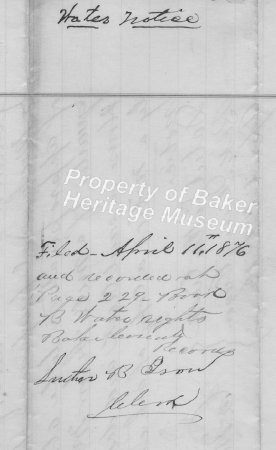 Water Notice
Property of Baker
Heritage Museum
Filed - April 11th 1876
and recorded at
Page 229 - Book
B Water rights
Baker County
Records
Luther B Ison
Clerk